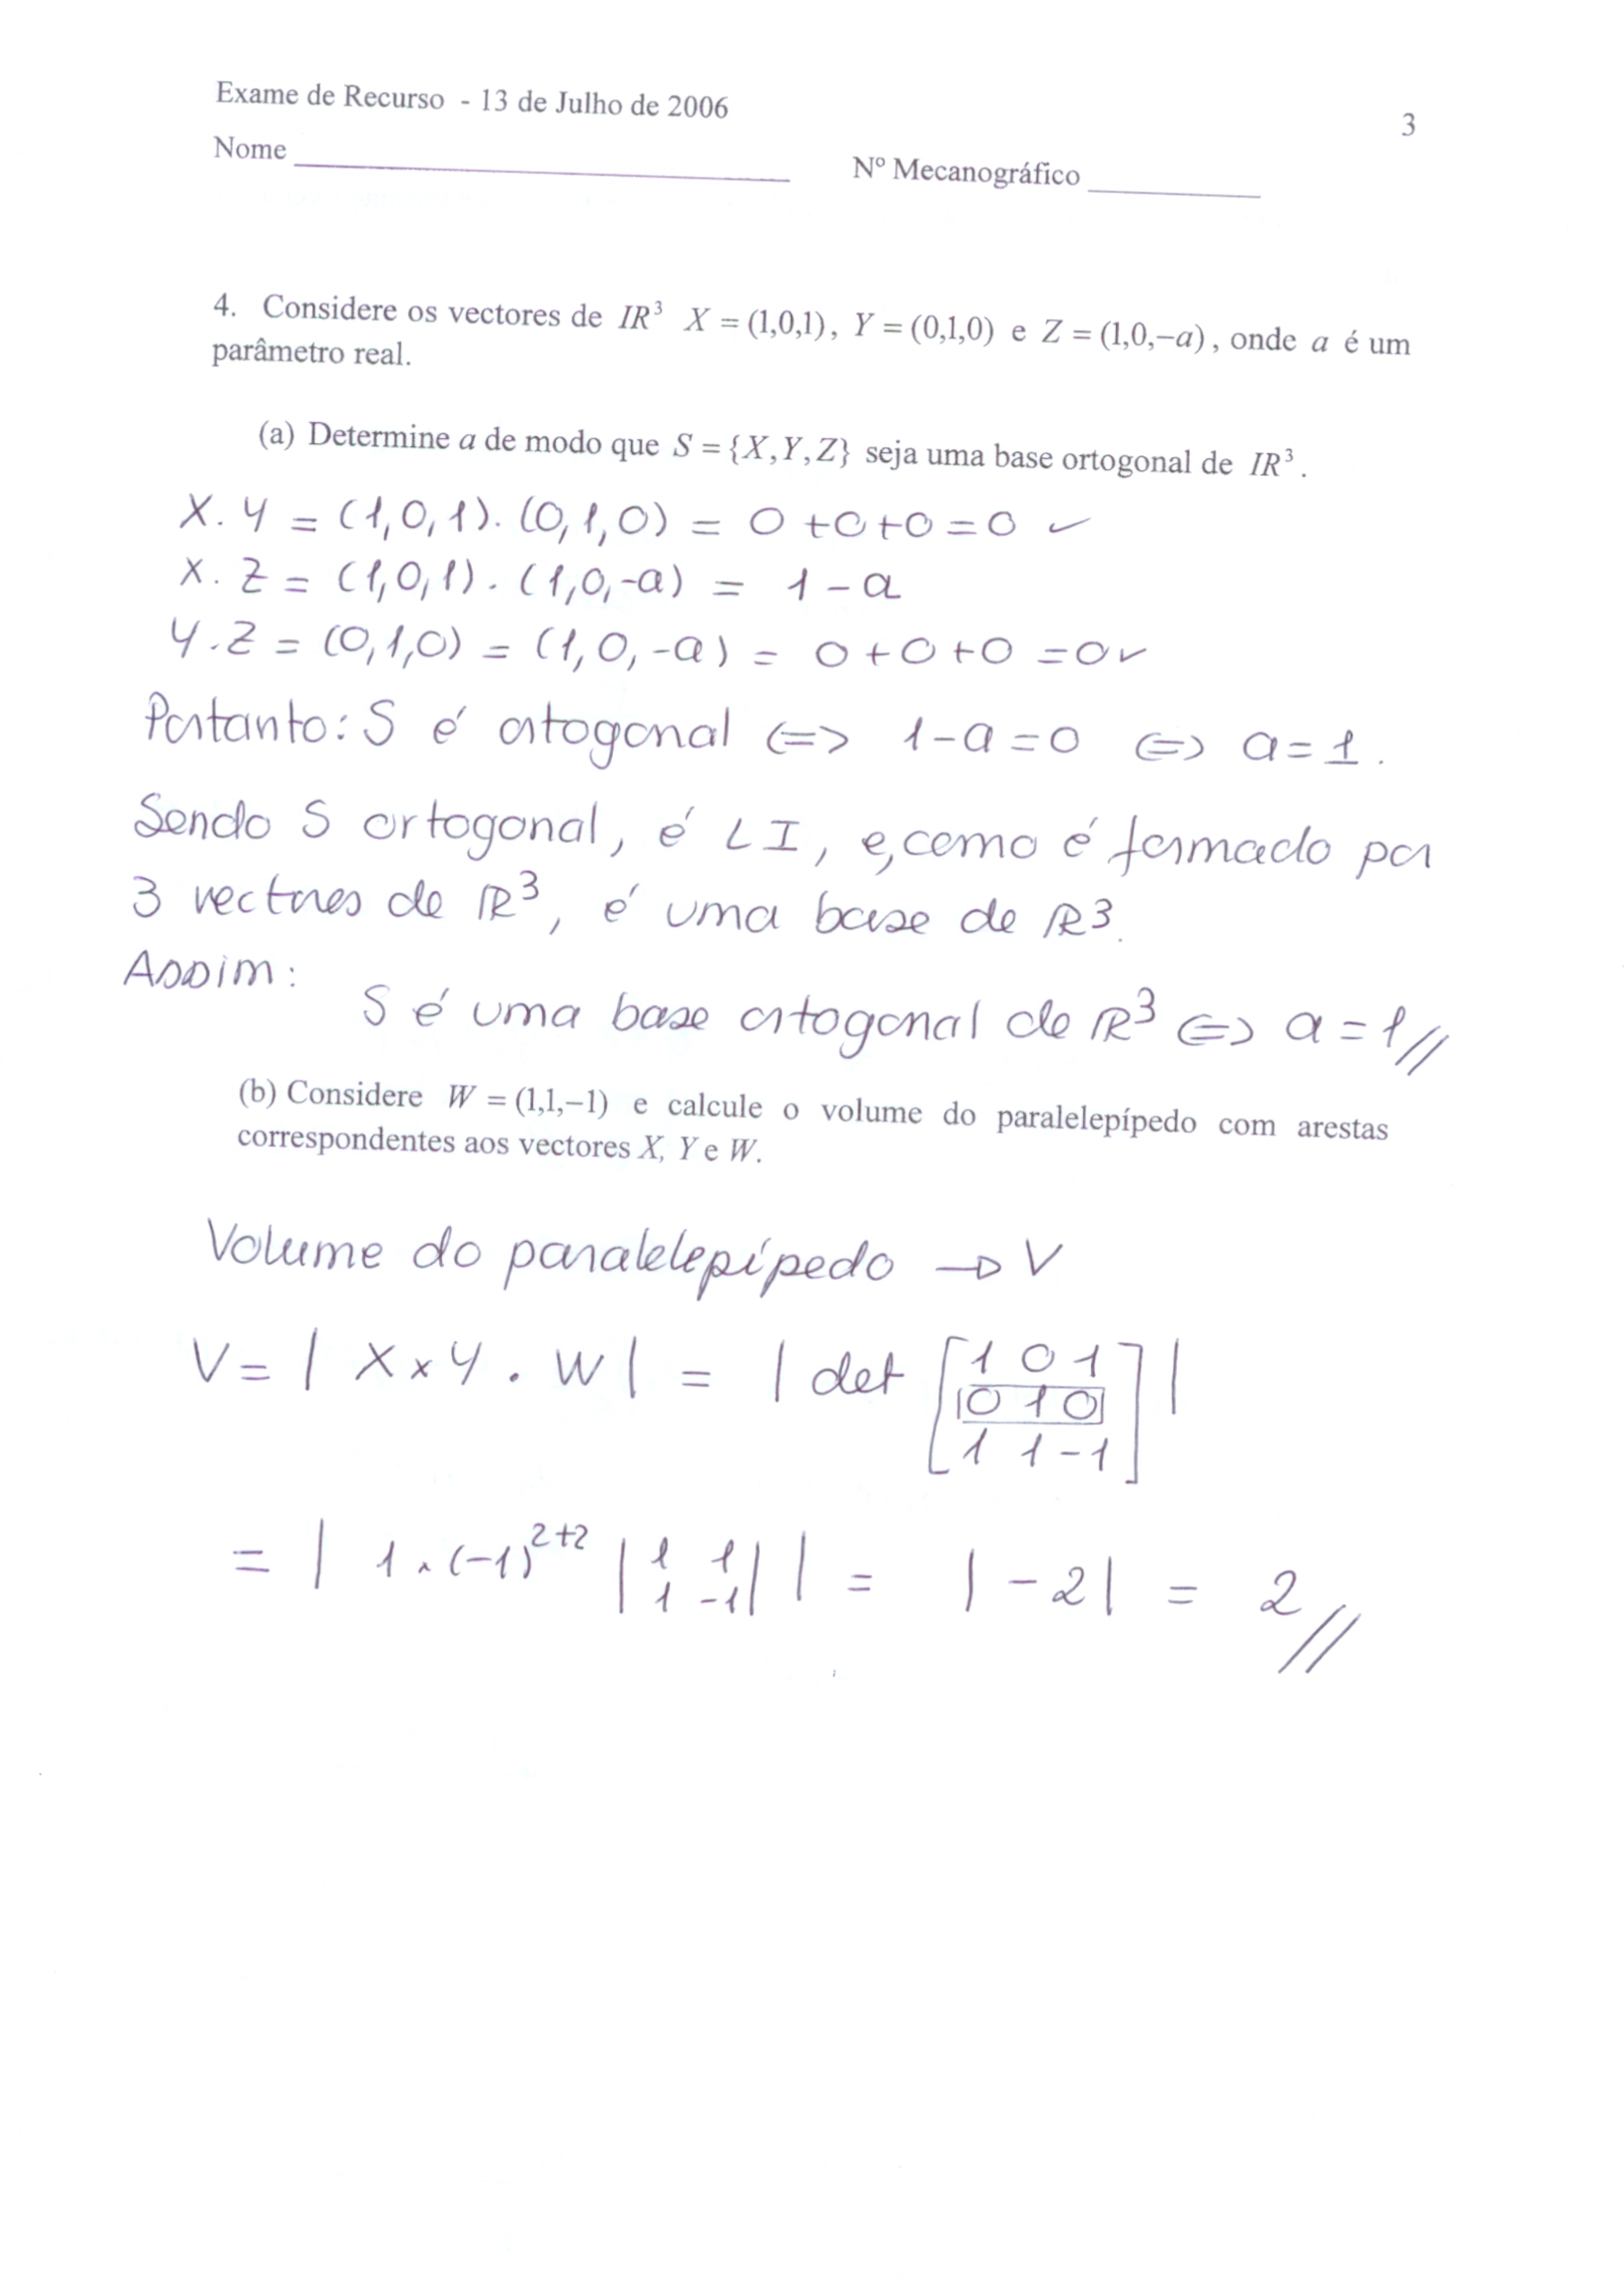 Exame de Recurso - 13 de Julho de 2006
3
Nome
Nº Mecanográfico
4. Considere os vectores de IR³ X = (1,0,1), Y = (0,1,0) e Z = (1,0,−a), onde a é um
parâmetro real.
(a) Determine a de modo que S = {X,Y,Z} seja uma base ortogonal de IR³.
X.Y = (1,0,1).(0,1,0) = 0+0+0=0 ✓
X.Z = (1,0,1).(1,0,-a) = 1-a
Y.Z = (0,1,0) = (1,0,-a) = 0+0+0=0✓
Portanto: S é ortogonal <=> 1-a=0 <=> a=1.
Sendo S ortogonal, é LI, e, como é formado por
3 vectores de IR³, é uma base de IR³.
Assim:
S é uma base ortogonal de IR³ <=> a=1//
(b) Considere W = (1,1,−1) e calcule o volume do paralelepípedo com arestas
correspondentes aos vectores X, Y e W.
Volume do paralelepípedo → V
V = | X×Y . W | = | det [1 0 1
0 1 0
1 1 -1] |
= | 1×(-1)²⁺² | 1 1
1 -1 | | = |-2| = 2//